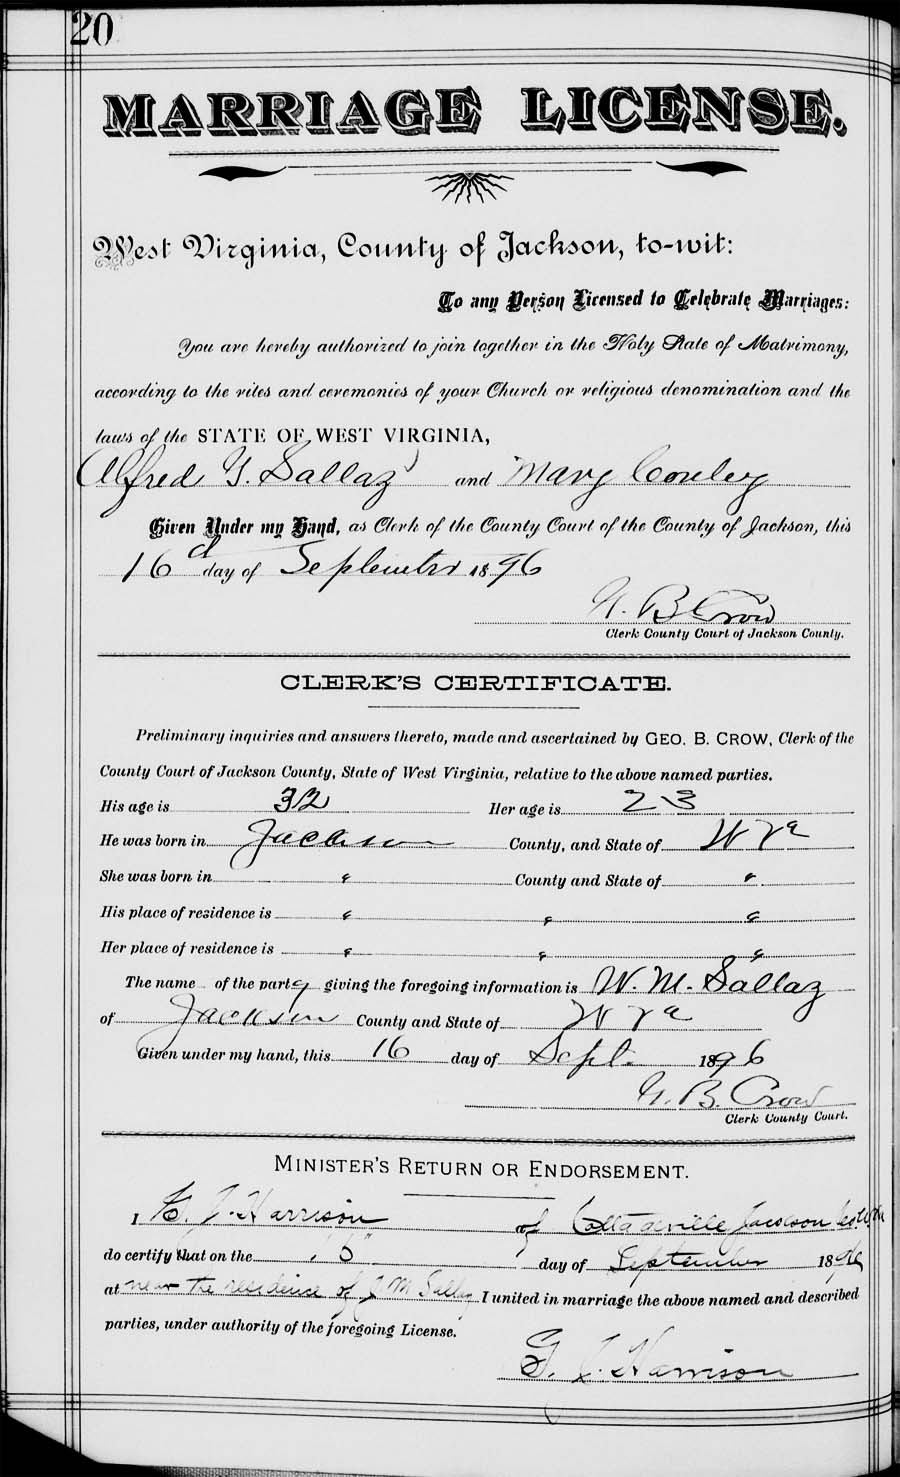 20
MARRIAGE LICENSE.
West Virginia, County of Jackson, to-wit:
To any Person Licensed to Celebrate Marriages:
You are hereby authorized to join together in the Holy State of Matrimony,
according to the rites and ceremonies of your Church or religious denomination and the
laws of the STATE OF WEST VIRGINIA,
Alfred G. Sallaz and Mary Conley
Given Under my Hand, as Clerk of the County Court of the County of Jackson, this
16 d day of September 1896
G. B. Crow
Clerk County Court of Jackson County.
CLERK'S CERTIFICATE.
Preliminary inquiries and answers thereto, made and ascertained by GEO. B. CROW, Clerk of the
County Court of Jackson County, State of West Virginia, relative to the above named parties.
His age is 32 Her age is 23
He was born in Jackson County, and State of W Va
She was born in " County and State of "
His place of residence is " " "
Her place of residence is " " "
The name of the party giving the foregoing information is W. M. Sallaz
of Jackson County and State of W Va
Given under my hand, this 16 day of Sept. 1896
G. B. Crow
Clerk County Court.
MINISTER'S RETURN OR ENDORSEMENT.
I G. J. Harrison of Cottageville Jackson
do certify that on the day of September 1896
at near the residence of J M Sallaz I united in marriage the above named and described
parties, under authority of the foregoing License.
G. J. Harrison